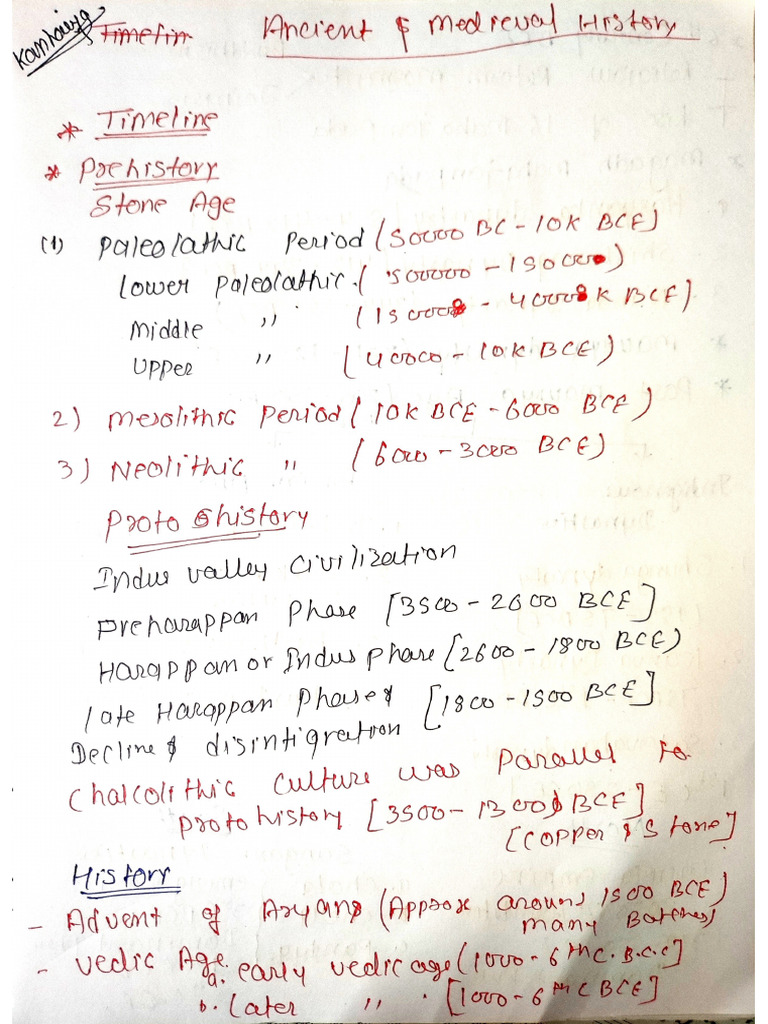 Kanhaiya
Timelin Ancient & Medieval History
* Timeline
* Prehistory
Stone Age
(1) Paleolathic Period (50000 BC - 10K BCE)
Lower Paleolathic. (500000 - 150000)
Middle " (150000 - 40000 K BCE)
Upper " (40000 - 10K BCE)
2) Mesolithic Period (10K BCE - 6000 BCE)
3) Neolithic " (6000 - 3000 BCE)
Proto history
Indus valley civilization
Preharappan Phase [3500 - 2600 BCE]
Harappan or Indus phase (2600 - 1800 BCE)
late Harappan Phase & [1800 - 1500 BCE]
Decline & disintigration
Chalcolithic culture was Parallel to
protohistory [3500 - 1300 BCE]
[Copper & Stone]
History
- Advent of Aryans (Approx around 1500 BCE)
many Batches)
- Vedic Age. a. early vedic age (1000 - 6th C. B.C.E]
b. Later " . [1000 - 6th C BCE]